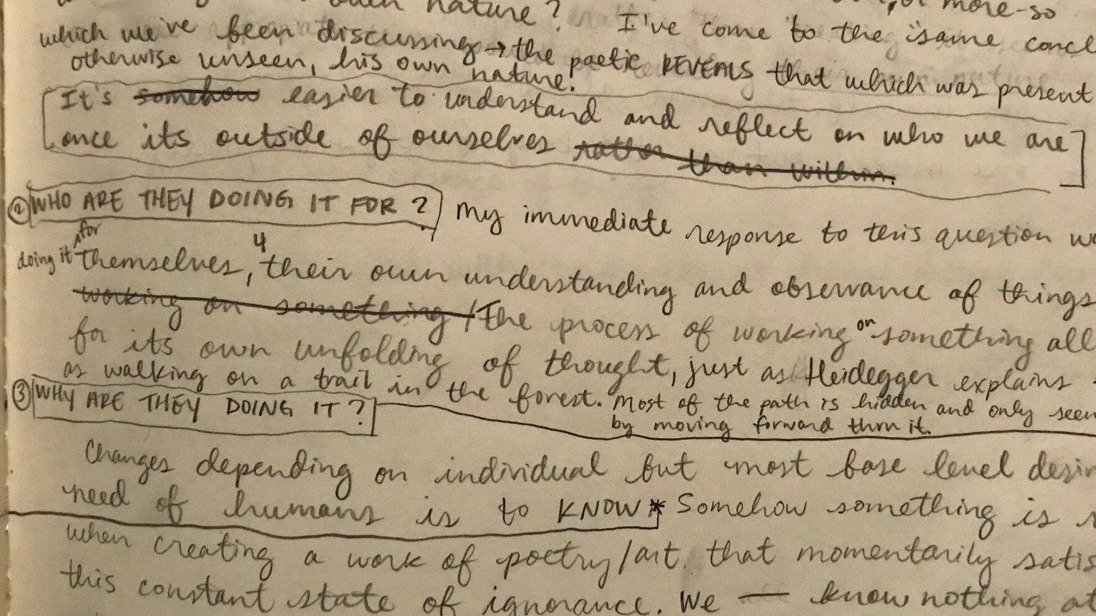 nature? I've come to the "same concl
which we've been discussing → the poetic REVEALS that which was present
otherwise unseen, his own nature.
It's somehow easier to understand and reflect on who we are
once its outside of ourselves rather than within.
② WHO ARE THEY DOING IT FOR? My immediate response to this question w
doing it for themselves, 4 their own understanding and observance of things
working on something / The process of working on something all
for its own unfolding of thought, just as Heidegger explains
as walking on a trail in the forest. Most of the path is hidden and only seen
③ WHY ARE THEY DOING IT? by moving forward thru it.
Changes depending on individual but most base level desir
need of humans is to KNOW* Somehow something is
when creating a work of poetry/art that momentarily satis
this constant state of ignorance. We — know nothing at